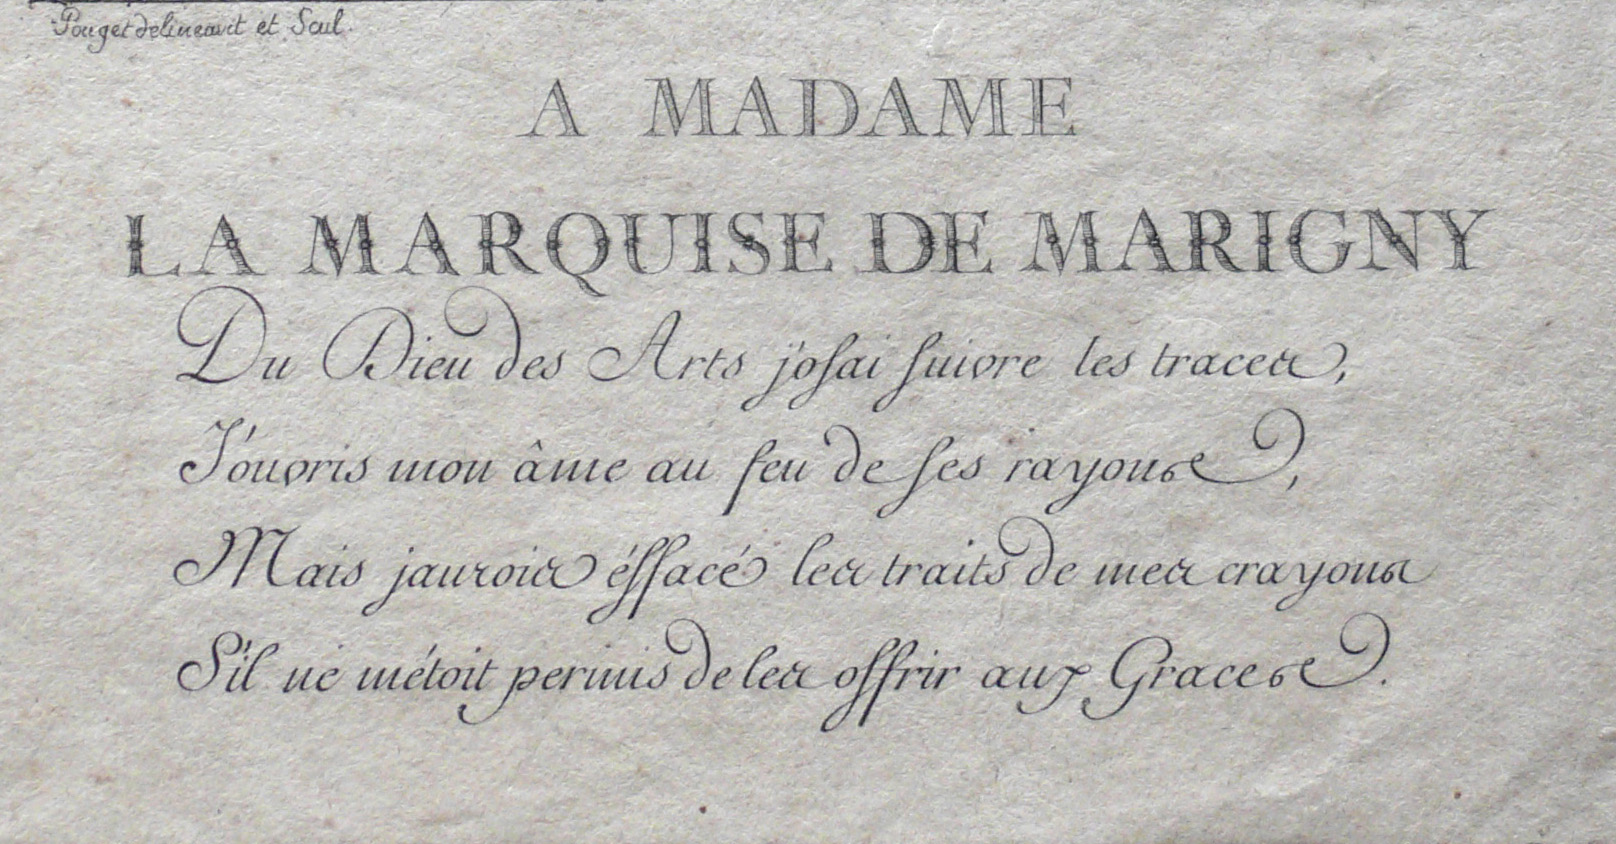 Pouget delineavit et Scul.
A MADAME
LA MARQUISE DE MARIGNY
Du Dieu des Arts j'osai suivre les traces,
J'ouvris mon âme au feu de ses rayons,
Mais jaurois éffacé les traits de mes crayons
S'il ne métoit permis de les offrir aux Graces.